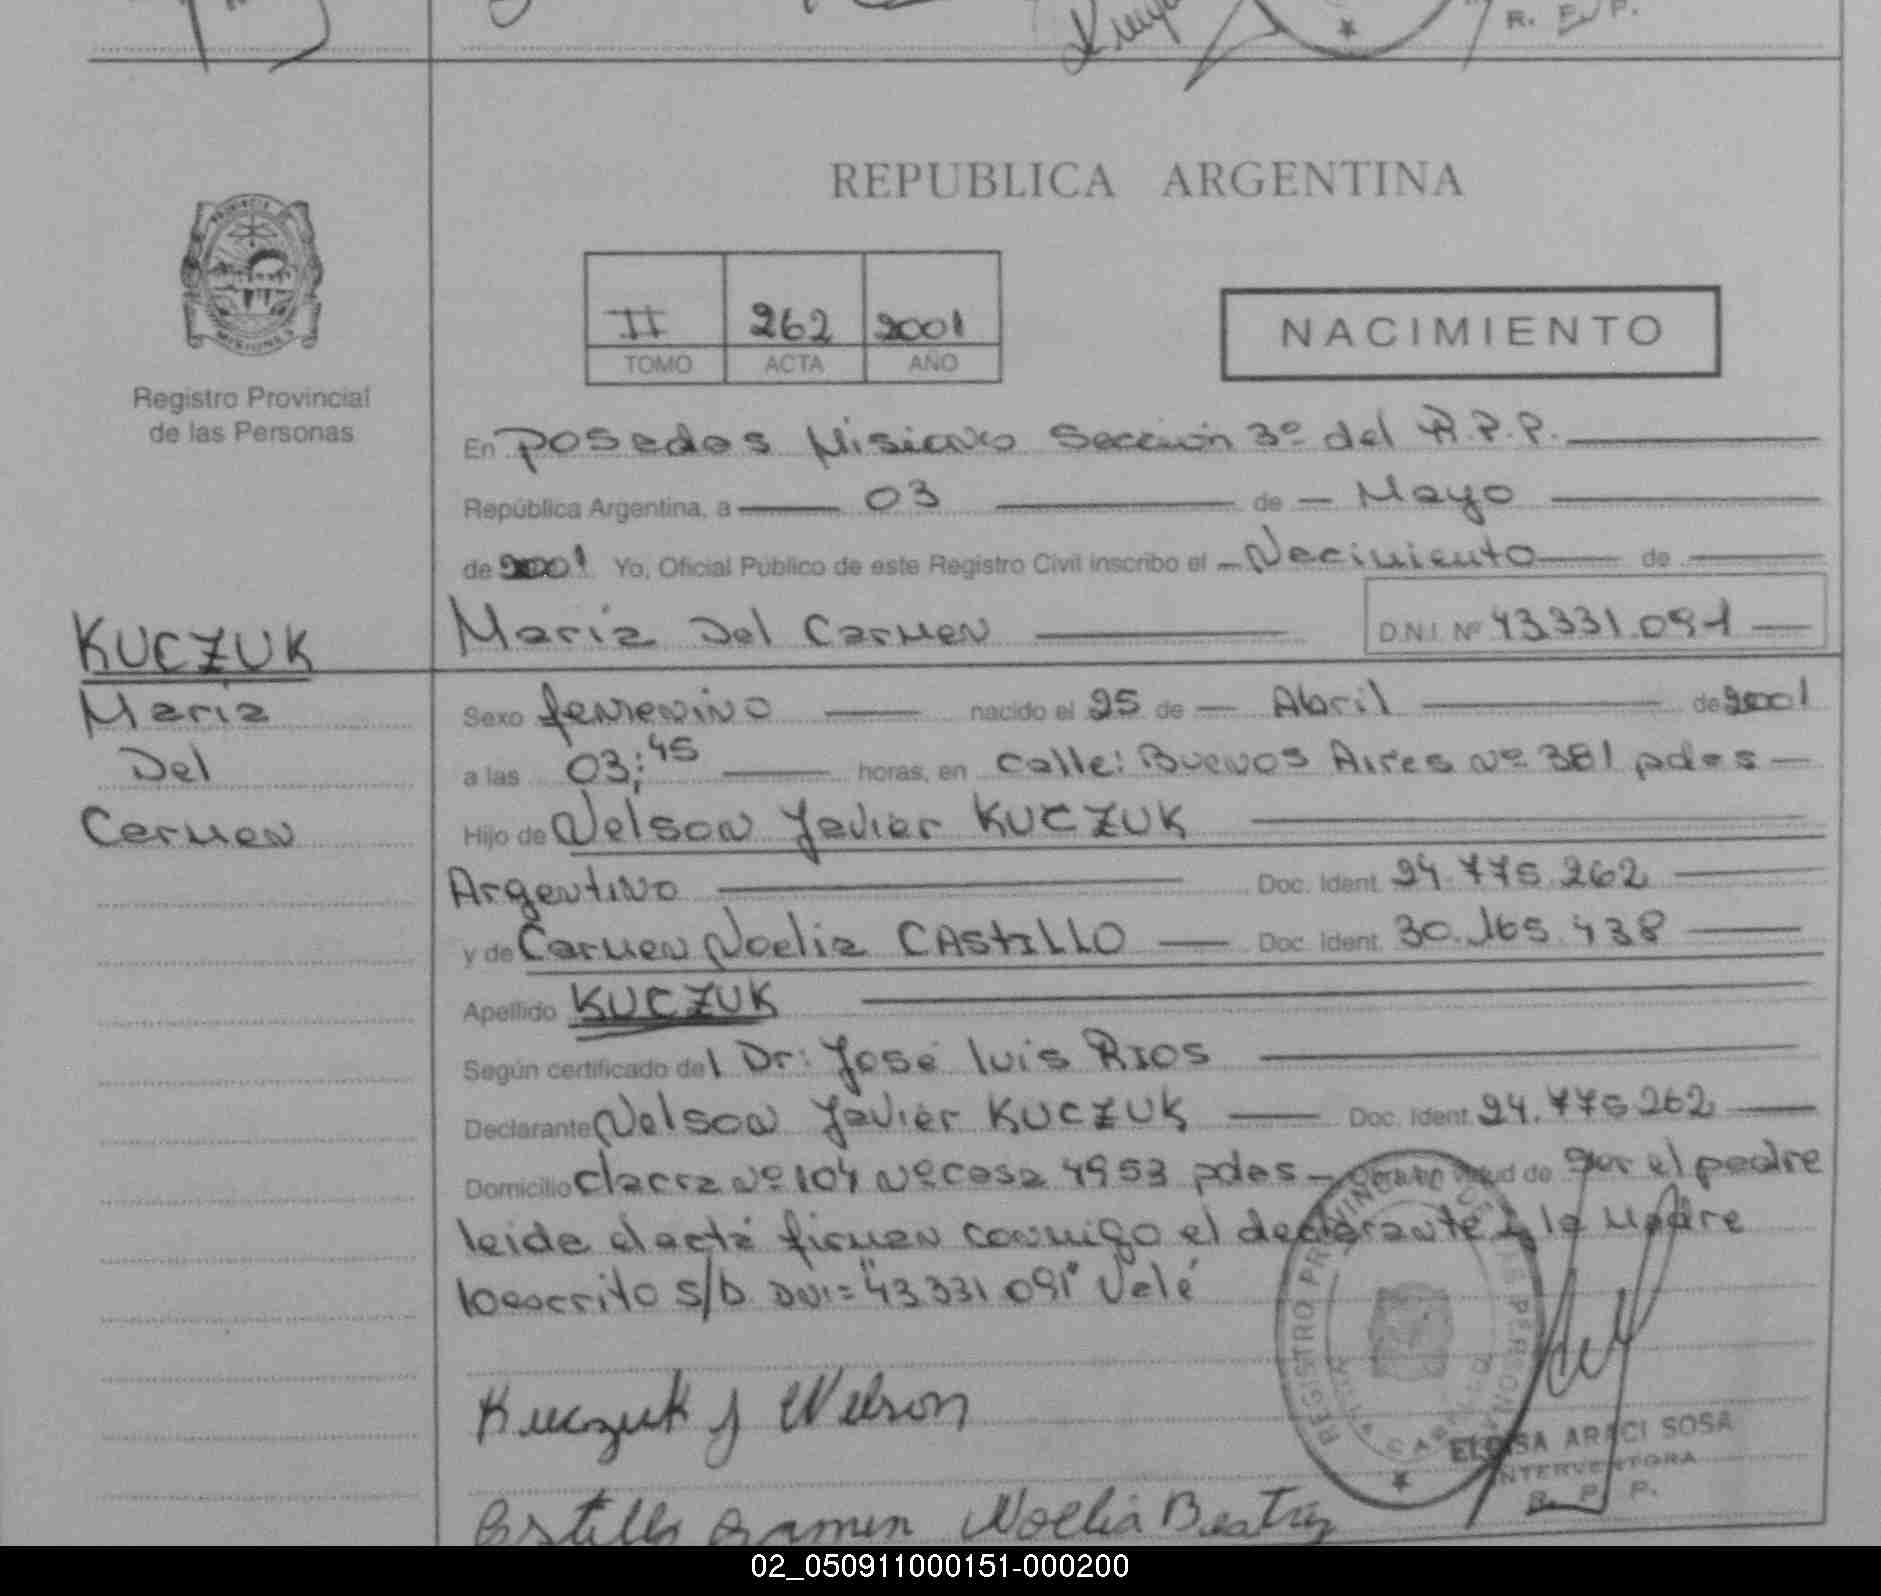 R. E. P.
REPUBLICA ARGENTINA
PROVINCIA
MISIONES
II 262 2001
TOMO ACTA AÑO
NACIMIENTO
Registro Provincial
de las Personas
En Posadas Misiones Sección 3º del R.P.P.
República Argentina, a 03 de Mayo
de 2001 Yo, Oficial Público de este Registro Civil inscribo el Nacimiento de
María Del Carmen D.N.I. Nº 43.331.091
KUCZUK
María
Del
Carmen
Sexo femenino nacido el 25 de Abril de 2001
a las 03:45 horas, en calle: Buenos Aires Nº 381 pdas
Hijo de Nelson Javier KUCZUK
Argentino Doc. Ident. 24.775.262
y de Carmen Noelia CASTILLO Doc. Ident. 30.165.438
Apellido KUCZUK
Según certificado del Dr: José luis RIOS
Declarante Nelson Javier KUCZUK Doc. Ident. 24.775.262
Domicilio chacra Nº 104 Nº casa 4953 pdas de por el padre
leida el acta firman conmigo el declarante y la Madre
loescrito s/b DNI= "43 331 091" Vale
Kuczuk J Nelson
Castillo Carmen Noelia Beatriz
REGISTRO PROVINCIAL DE LAS PERSONAS
ELOISA ARACI SOSA
INTERVENTORA
R. P. P.
02_050911000151-000200